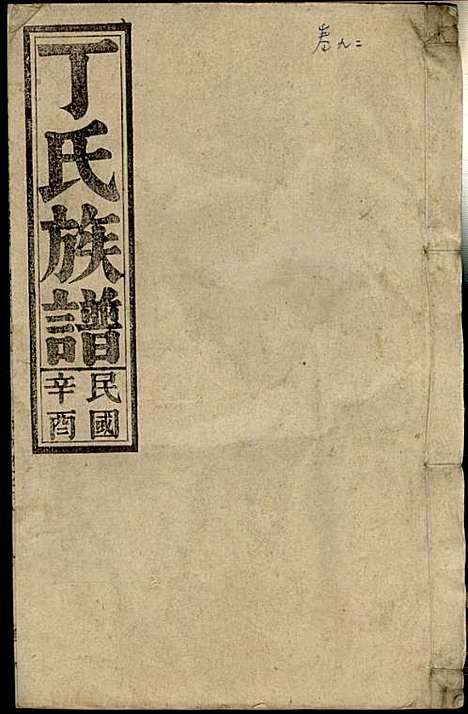 卷九二
丁氏族譜
民國
辛酉